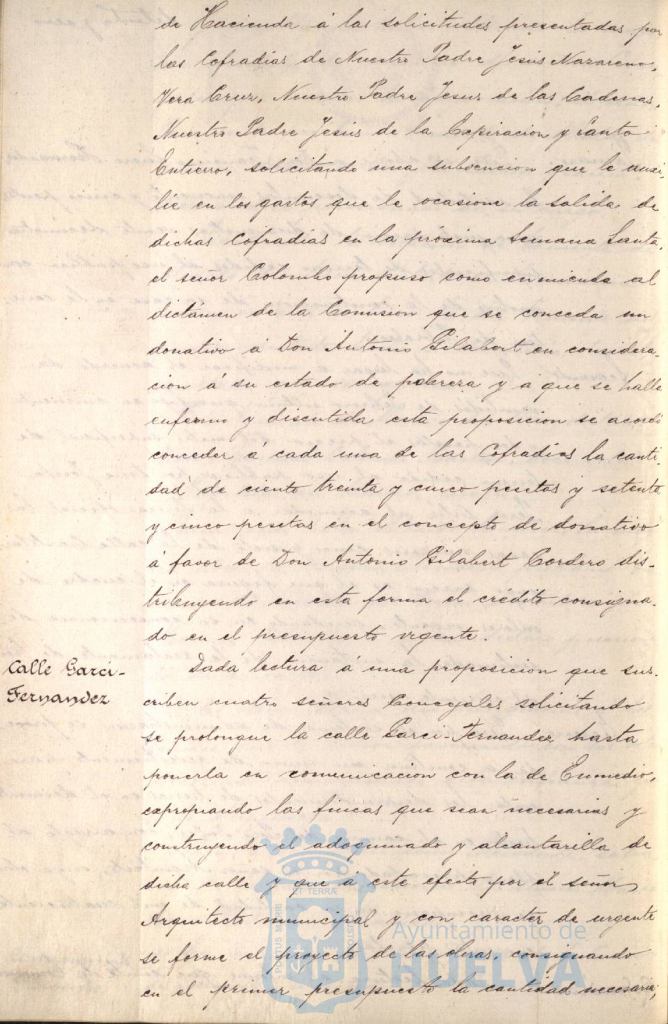 de Hacienda á las solicitudes presentadas por
las Cofradias de Nuestro Padre Jesús Nazareno,
Vera Cruz, Nuestro Padre Jesus de las Cadenas,
Nuestro Padre Jesús de la Expiración y Santo
Entierro, solicitando una subvencion que le auxi-
lie en los gastos que le ocasione la salida de
dichas Cofradias en la próxima Semana Santa,
el señor Colombo propuso como enmienda al
dictámen de la Comisión que se conceda un
donativo á Don Antonio Gilabert en considera
cion á su estado de pobreza y á que se halle
enfermo y discutida esta proposicion se acordó
conceder á cada una de las Cofradias la canti
dad de ciento treinta y cinco pesetas y setenta
y cinco pesetas en el concepto de donativo
á favor de Don Antonio Gilabert Cordero dis-
tribuyendo en esta forma el crédito consigna-
do en el presupuesto vigente.
Calle Garci-
Fernandez
Dada lectura á una proposicion que sus-
criben cuatro señores Concejales solicitando
se prolongue la calle Garci-Fernandez hasta
ponerla en comunicacion con la de Enmedio,
expropiando las fincas que sean necesarias y
construyendo el adoquinado y alcantarilla de
dicha calle y que á este efecto por el señor
Arquitecto municipal y con caracter de urgente
se forme el proyecto de las obras, consignando
en el primer presupuesto la cantidad necesaria,
Ayuntamiento de
HUELVA